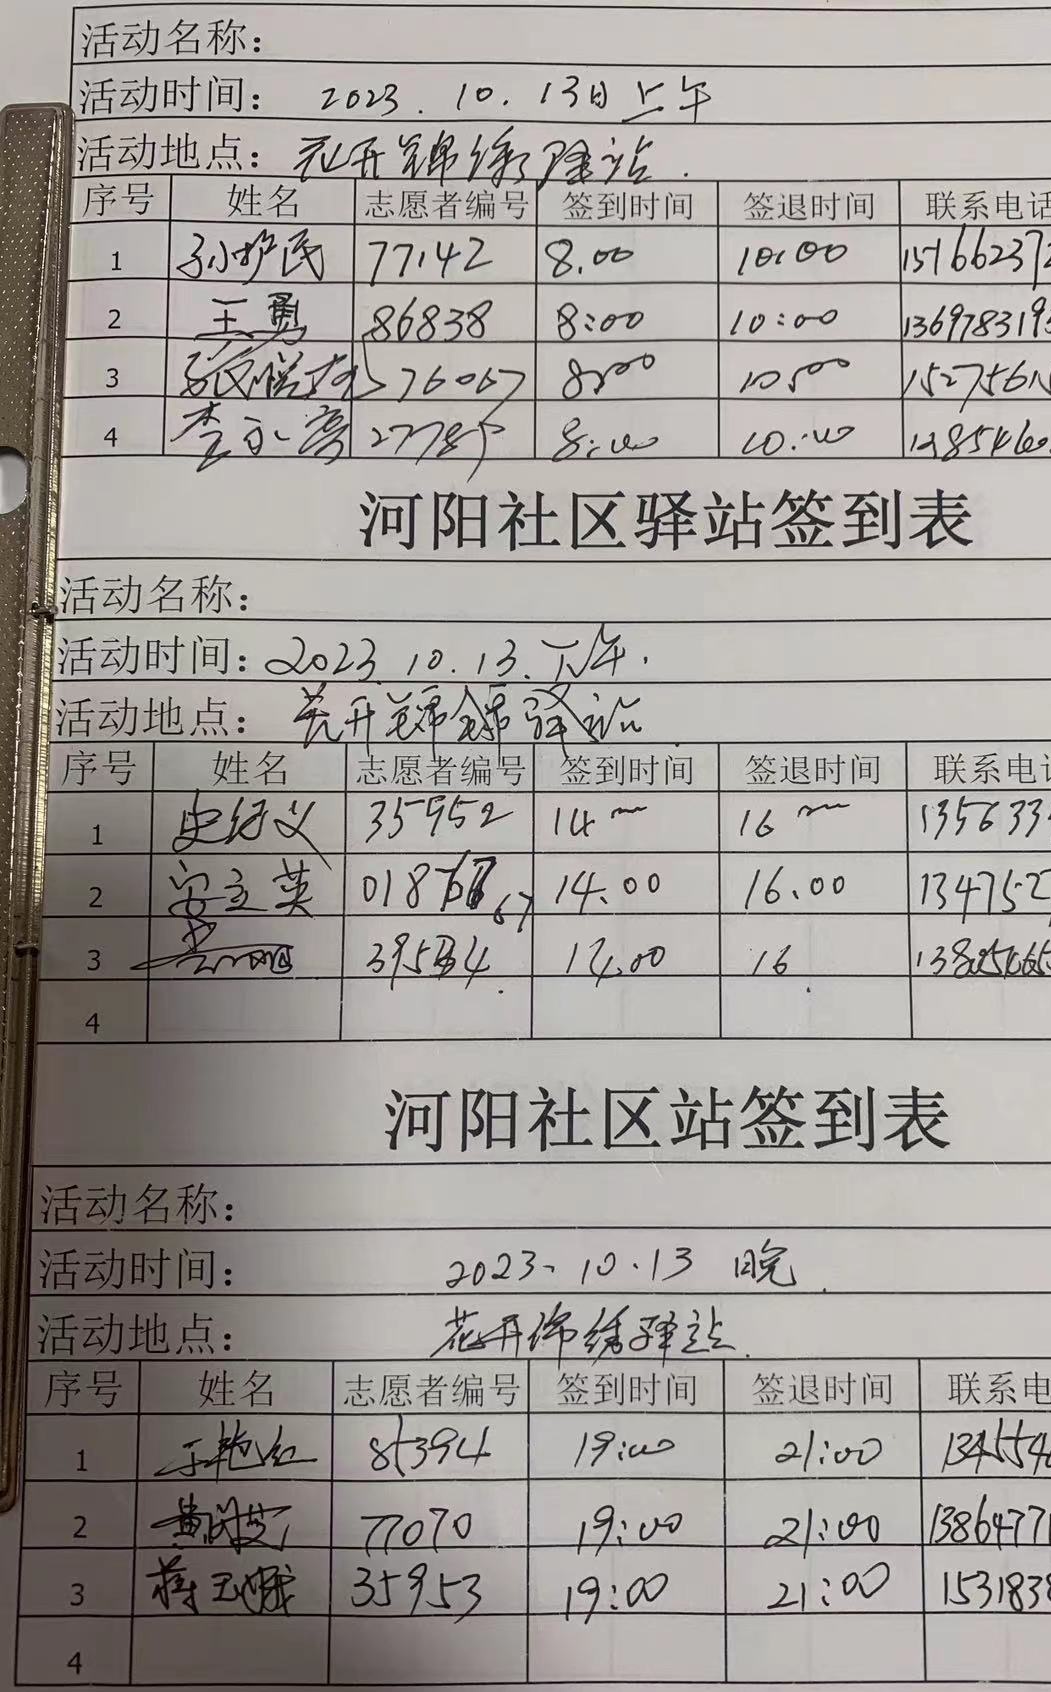 活动名称：
活动时间： 2023.10.13日上午
活动地点：花开锦绣驿站.
序号 姓名 志愿者编号 签到时间 签退时间 联系电话
1 民 77142 8.00 10:00 15166237
2 王勇 86838 8:00 10:00 136978319
3 76067 8:00 10:00 1527561
4 李永 27785 8:00 10:00
河阳社区驿站签到表
活动名称：
活动时间：2023.10.13.下午.
活动地点：花开锦绣驿站
序号 姓名 志愿者编号 签到时间 签退时间 联系电话
1 史 义 35952 14 16 135633
2 安立英 018767 14.00 16.00 134752
3 14.00 16
4
河阳社区站签到表
活动名称：
活动时间： 2023.10.13 晚
活动地点： 花开锦绣驿站.
序号 姓名 志愿者编号 签到时间 签退时间 联系电
1 于艳红 85394 19:00 21:00 134554
2 黄 77070 19:00 21:00 1386477
3 蒋玉娥 35953 19:00 21:00 153183
4